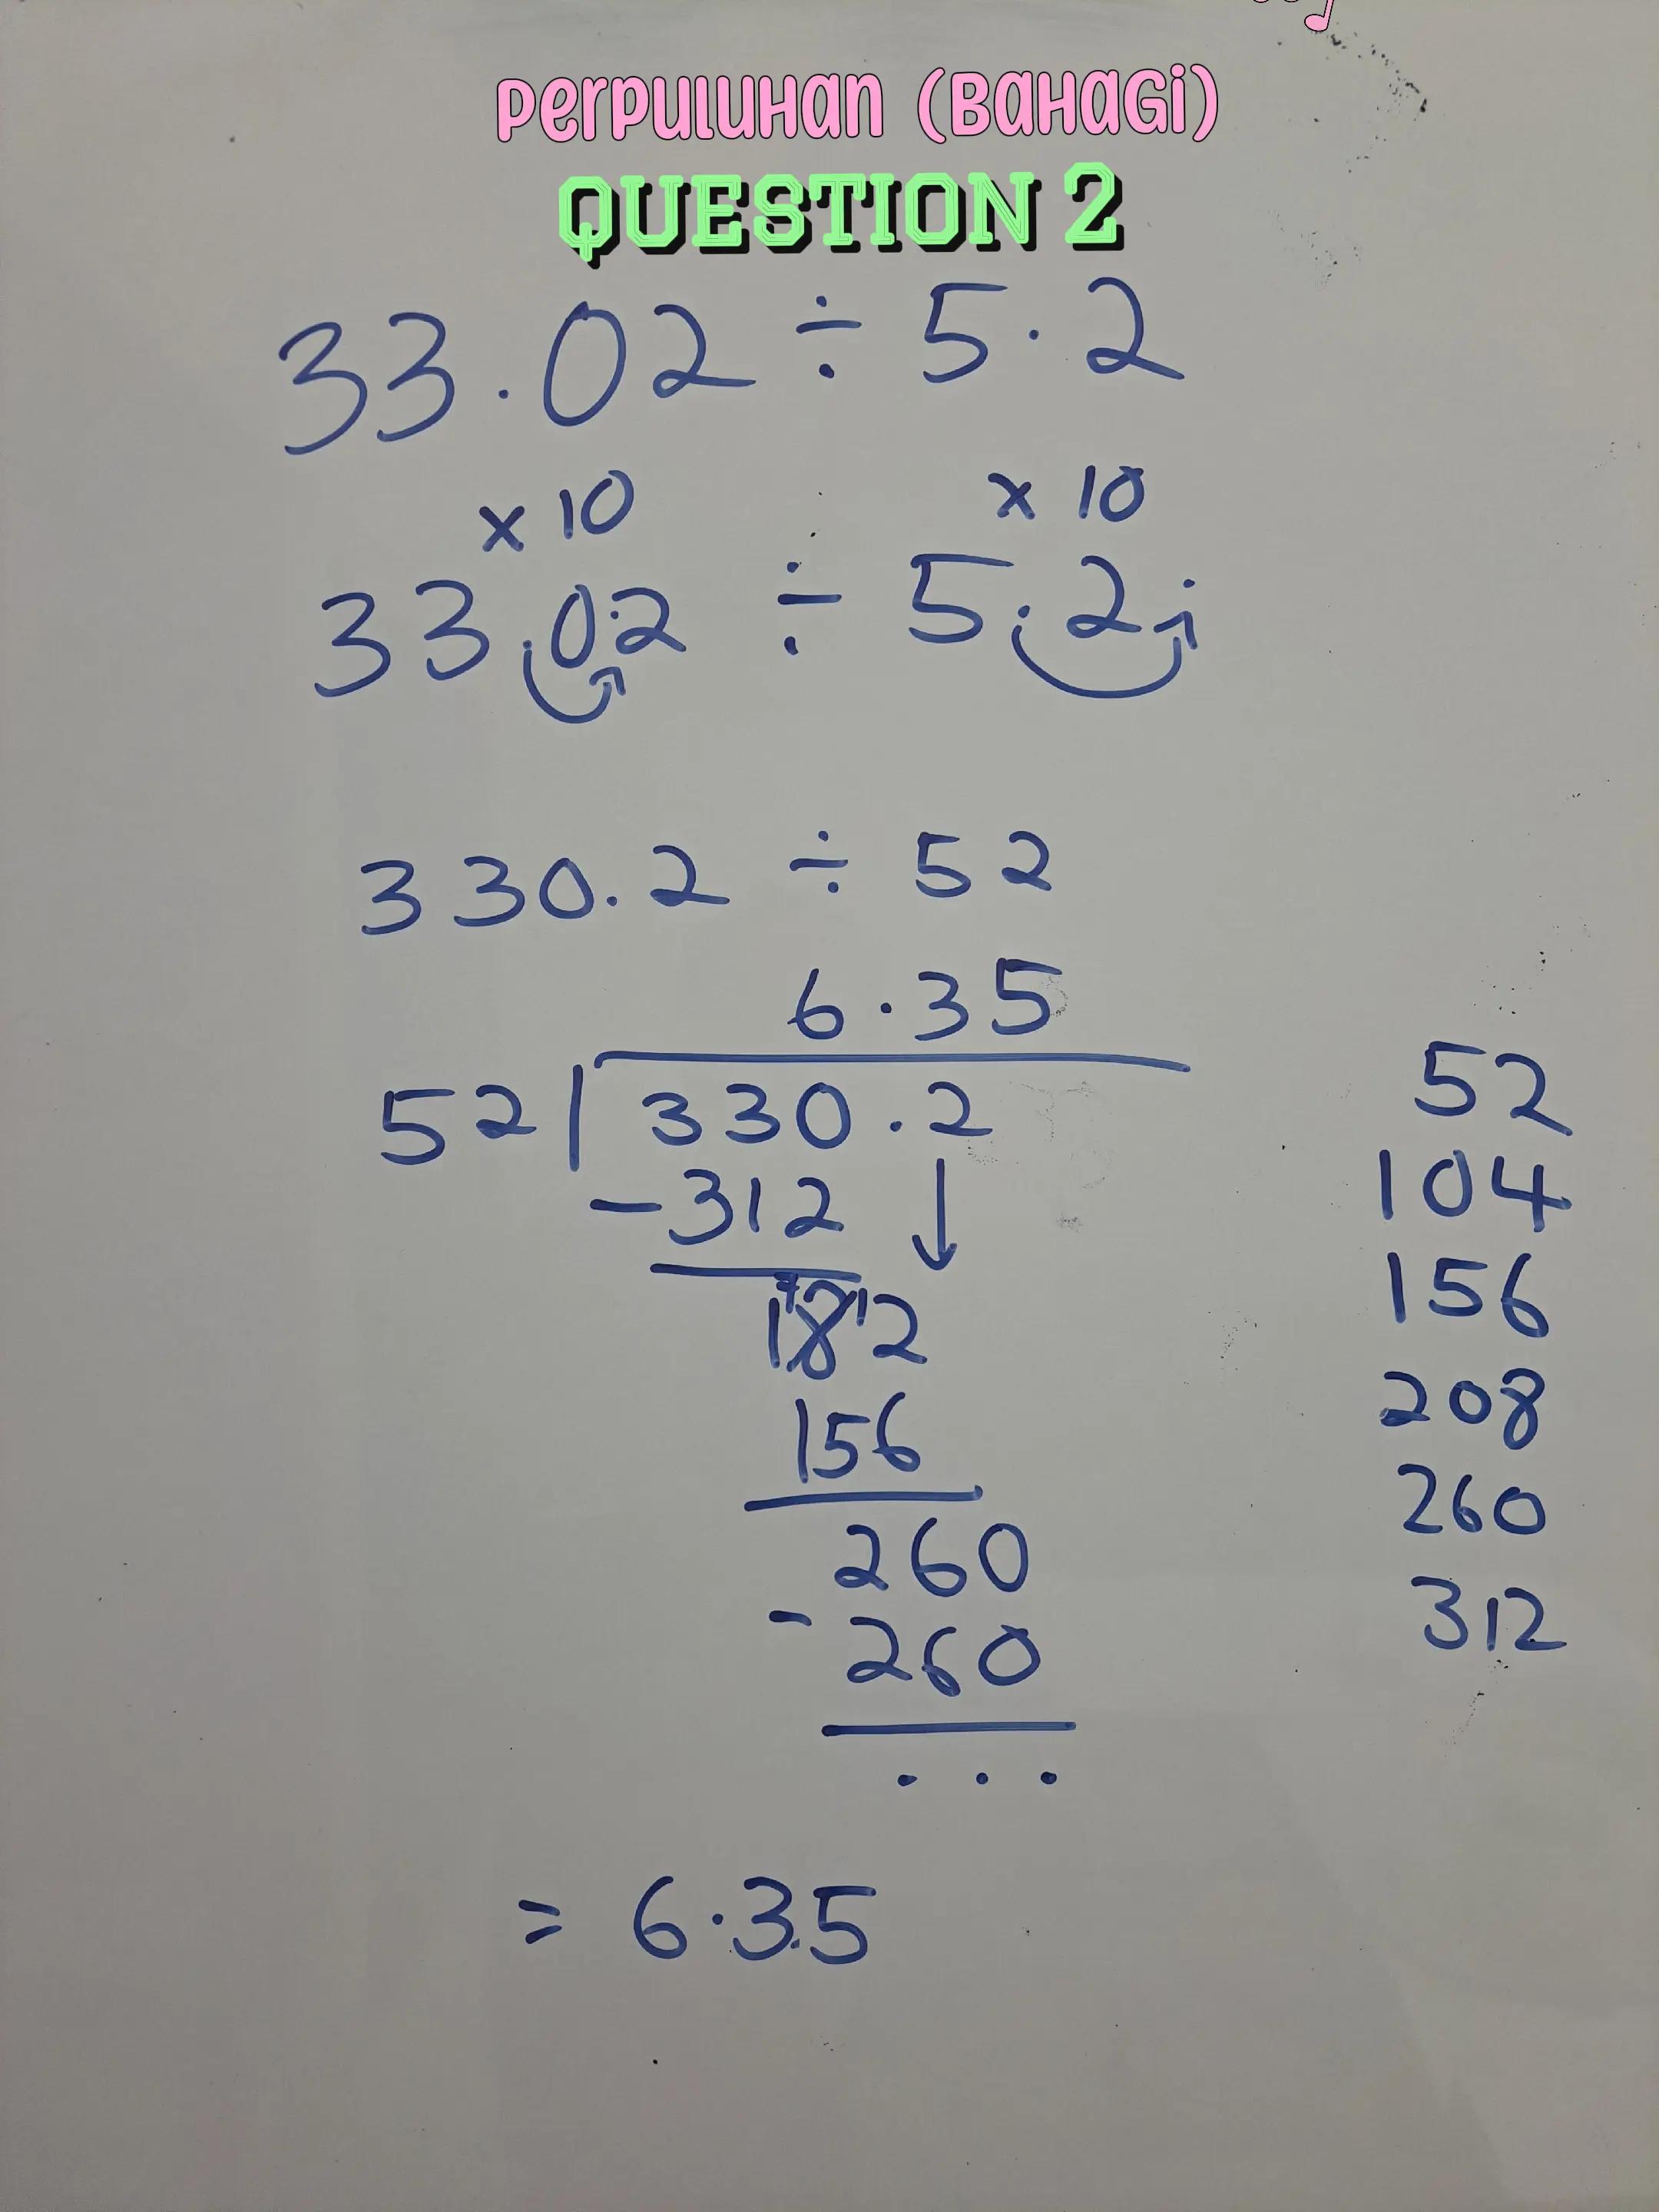 Perpuluhan (Bahagi)
QUESTION 2
33.02 ÷ 5.2
× 10 × 10
33.0.2 ÷ 5.2.
330.2 ÷ 52
6.35
52 330.2
-312
182
7 12
156
260
- 260
. . .
= 6.35
52
104
156
208
260
312